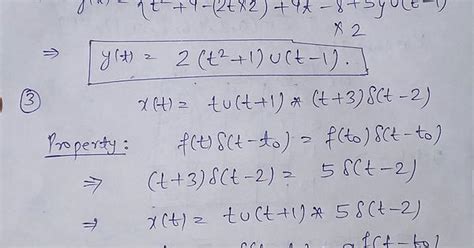 y(t) = 2(t²+1)u(t-1).
③ x(t) = tu(t+1) * (t+3)δ(t-2)
Property: f(t)δ(t-t₀) = f(t₀)δ(t-t₀)
⇒ (t+3)δ(t-2) = 5δ(t-2)
⇒ x(t) = tu(t+1) * 5δ(t-2)